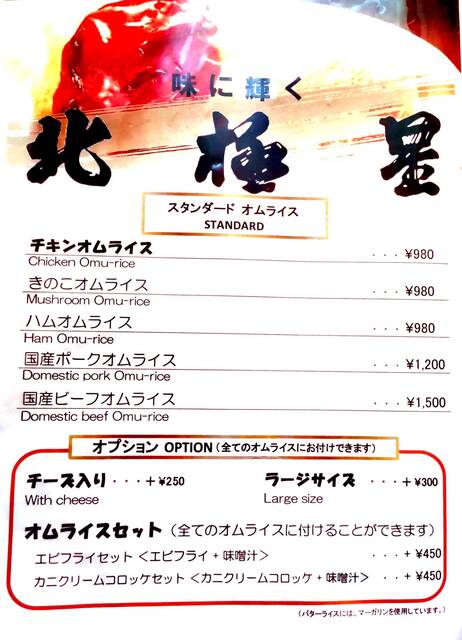 味に輝く
北極星
スタンダード オムライス
STANDARD
チキンオムライス ・・・¥980
Chicken Omu-rice
きのこオムライス ・・・¥980
Mushroom Omu-rice
ハムオムライス ・・・¥980
Ham Omu-rice
国産ポークオムライス ・・・¥1,200
Domestic pork Omu-rice
国産ビーフオムライス ・・・¥1,500
Domestic beef Omu-rice
オプション OPTION（全てのオムライスにお付けできます）
チーズ入り ・・・＋¥250 ラージサイズ ・・・＋¥300
With cheese Large size
オムライスセット（全てのオムライスに付けることができます）
エビフライセット＜エビフライ + 味噌汁＞ ・・・+ ¥450
カニクリームコロッケセット＜カニクリームコロッケ + 味噌汁＞ ・・・+ ¥450
（バターライスには、マーガリンを使用しています。）